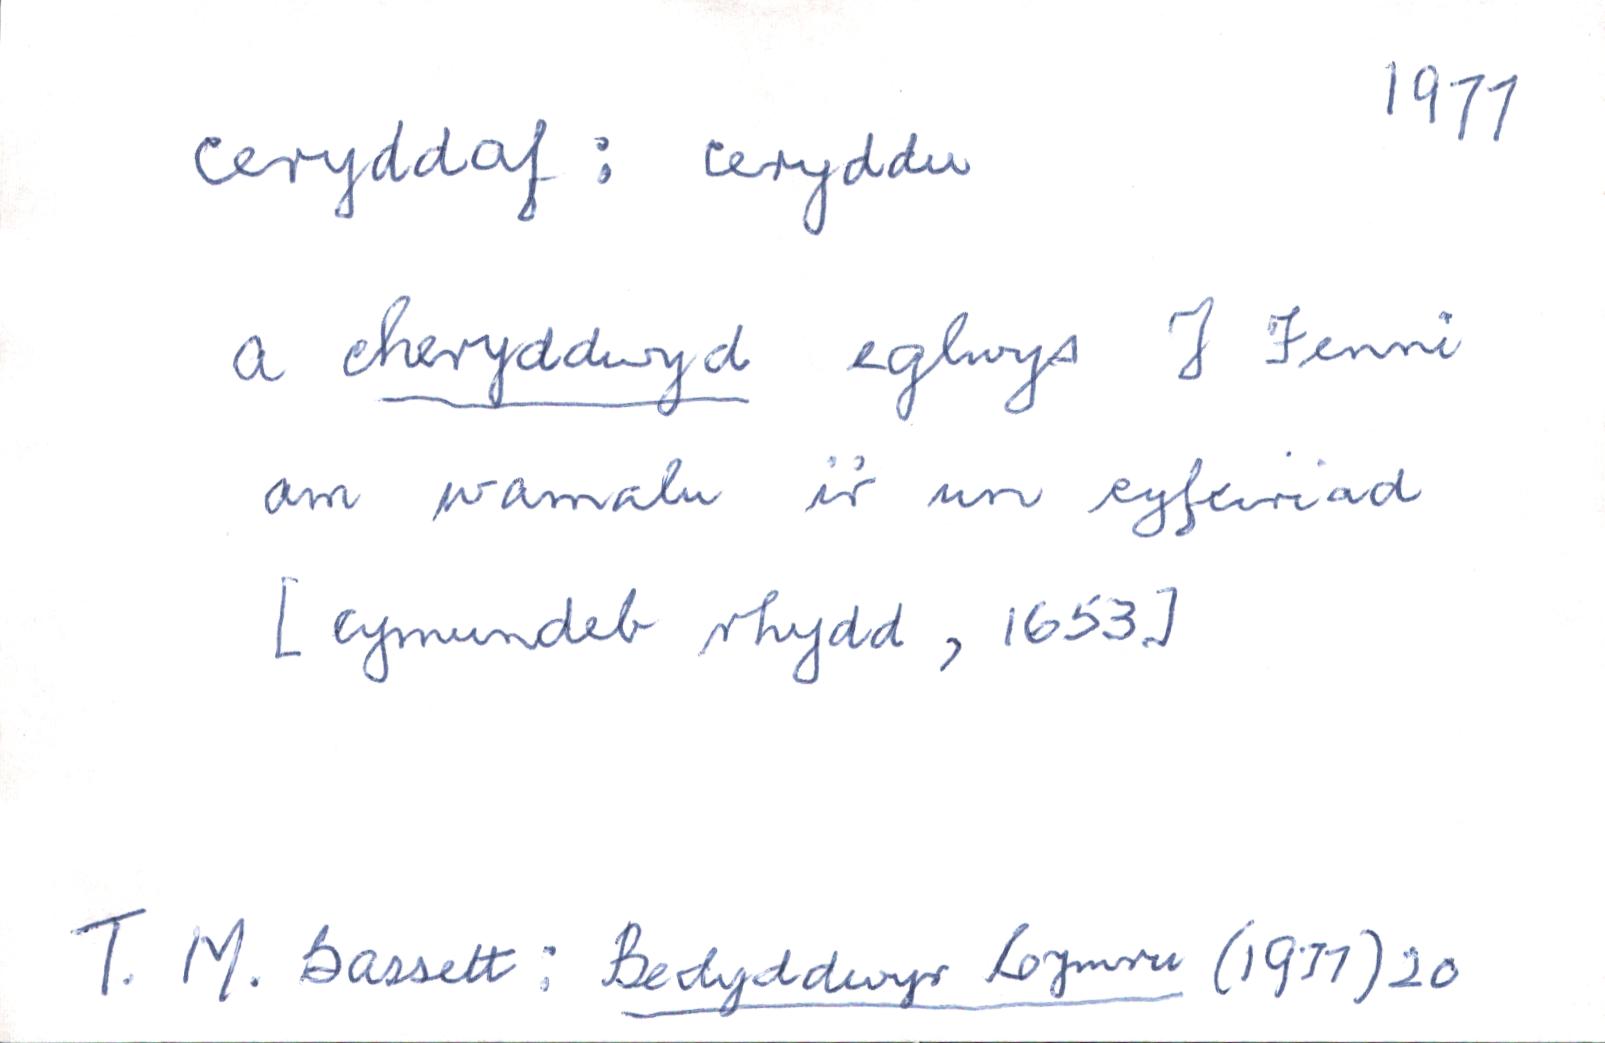 1977
ceryddaf : ceryddu
a cheryddwyd eglwys Y Fenni
am wamalu i'r un cyfeiriad
[ cymundeb rhydd , 1653 ]
T. M. Bassett : Bedyddwyr Cymru (1977) 20